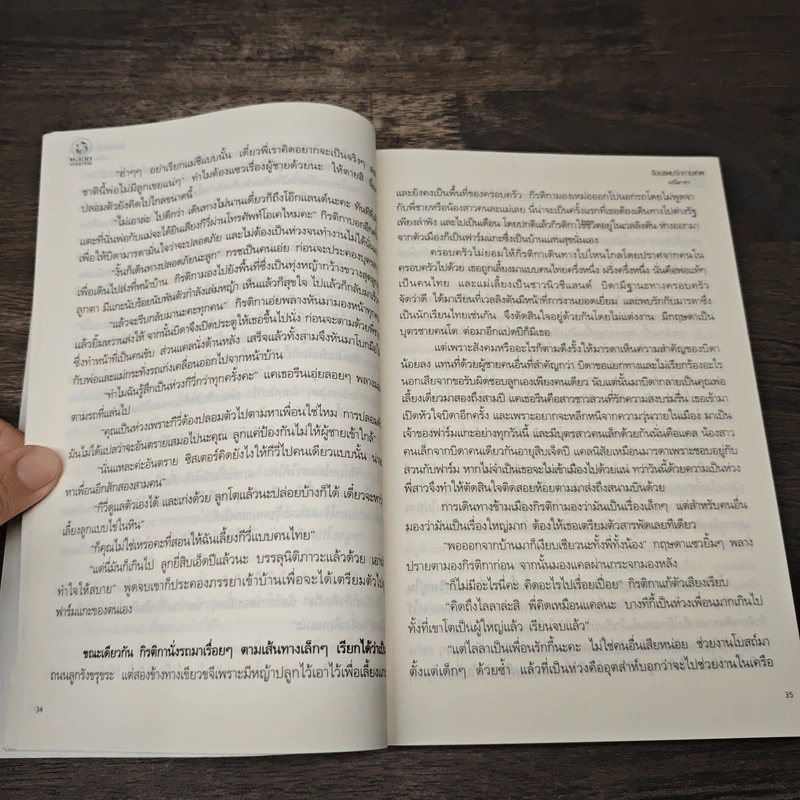 "ฮ่าๆๆ อย่าเรียกแม่ชีแบบนั้น เดี๋ยวพี่เราคิดอยากจะเป็นจริงๆ
ชาตินี้พ่อไม่มีลูกเขยแน่ๆ" ทำไมต้องแซวเรื่องผู้ชายด้วยนะ ให้ตายสิ
ปลอมตัวยังคิดไปไกลขนาดนี้
"ไม่เอาล่ะ ไปดีกว่า เดินทางไม่นานเดี๋ยวก็ถึงโอ๊กแลนด์นะคะ ทันทีที่
แตะที่นั่นพ่อกับแม่จะได้ยินเสียงกีวี่ผ่านโทรศัพท์โอเคไหมคะ" กิรติกาบอกอีก
เพื่อให้บิดามารดามั่นใจว่าจะปลอดภัย และไม่ต้องเป็นห่วงจนทำงานไม่ได้
"งั้นก็เดินทางปลอดภัยนะลูก" กรชเป็นคนเอ่ย ก่อนจะประคองบุตร
เพื่อเดินไปส่งที่หน้าบ้าน กิรติกามองไปยังพื้นที่ซึ่งเป็นทุ่งหญ้ากว้างขวาง
ลูกตา มีแกะนับร้อยนับพันตัวกำลังเล่มหญ้า เห็นแล้วก็สุขใจ ไปแล้วก็กลับมาเร็ว
"แล้วจะรีบกลับมานะคะทุกคน" กิรติกาเอ่ยพลางหันมามองหน้าทุกคน
แล้วยิ้มหวานส่งให้ จากนั้นบิดาจึงเปิดประตูให้เธอขึ้นไปนั่ง ก่อนจะตามด้วย
ซึ่งทำหน้าที่เป็นคนขับ ส่วนแคลนั่งด้านหลัง เสร็จแล้วทั้งสามจึงหันมาโบกมือ
กับพ่อและแม่กระทั่งรถเก่งเคลื่อนออกไปจากหน้าบ้าน
"ทำไมฉันรู้สึกเป็นห่วงกีวี่กว่าทุกครั้งคะ" แคเธอรีนเอ่ยลอยๆ พลาง
ตามรถที่แล่นไป
"คุณเป็นห่วงเพราะกีวี่ต้องปลอมตัวไปตามหาเพื่อนใช่ไหม การปลอม
มันไม่ได้แปลว่าจะอันตรายเสมอไปนะคุณ ลูกแค่ป้องกันไม่ให้ผู้ชายเข้าใกล้"
"นั่นแหละค่ะอันตราย ซิสเตอร์คิดยังไงให้กีวี่ไปคนเดียวแบบนั้น
หาเพื่อนอีกสักสองสามคน"
"กีวี่ดูแลตัวเองได้ และเก่งด้วย ลูกโตแล้วนะปล่อยบ้างก็ได้ เดี๋ยวจะหาว่า
เลี้ยงลูกแบบไข่ในหิน"
"ก็คุณไม่ใช่เหรอคะที่สอนให้ฉันเลี้ยงกีวี่แบบคนไทย"
"แต่นี่มันก็เกินไป ลูกยี่สิบเอ็ดปีแล้วนะ บรรลุนิติภาวะแล้วด้วย เอาน่า
ทำใจให้สบาย" พูดจบเขาก็ประคองภรรยาเข้าบ้านเพื่อจะได้เตรียมตัวไป
ฟาร์มแกะของตนเอง
ขณะเดียวกัน กิรติกานั่งรถมาเรื่อยๆ ตามเส้นทางเล็กๆ เรียกได้ว่าเป็น
ถนนลูกรังขรุขระ แต่สองข้างทางเขียวขจีเพราะมีหญ้าปลูกไว้เอาไว้เพื่อเลี้ยงแกะ
34
และยังคงเป็นพื้นที่ของครอบครัว กิรติกามองเหม่อออกไปนอกรถโดยไม่พูดจา
กับพี่ชายหรือน้องสาวคนละแม่เลย นี่น่าจะเป็นครั้งแรกที่เธอต้องเดินทางไปต่างรัฐ
เพียงลำพัง และไปเป็นเดือน โดยปกติแล้วกิรติกาใช้ชีวิตอยู่ในเวลลิงตัน ห่างออกมา
จากตัวเมืองก็เป็นฟาร์มแกะซึ่งเป็นบ้านแสนสุขนั่นเอง
ครอบครัวไม่ยอมให้กิรติกาเดินทางไปไหนไกลโดยปราศจากคนใน
ครอบครัวไปด้วย เธอถูกเลี้ยงมาแบบคนไทยครึ่งหนึ่ง ฝรั่งครึ่งหนึ่ง นั่นคือพ่อแท้ๆ
เป็นคนไทย และแม่เลี้ยงเป็นชาวนิวซีแลนด์ บิดามีฐานะทางครอบครัว
จัดว่าดี ได้มาเรียนที่เวลลิงตันมีหน้าที่การงานยอดเยี่ยม และพบรักกับมารดาซึ่ง
เป็นนักเรียนไทยเช่นกัน จึงตัดสินใจอยู่ด้วยกันโดยไม่แต่งงาน มีกฤษดาเป็น
บุตรชายคนโต ต่อมาอีกแปดปีก็มีเธอ
แต่เพราะสังคมหรืออะไรก็ตามดึงรั้งให้มารดาเห็นความสำคัญของบิดา
น้อยลง แทนที่ด้วยผู้ชายคนอื่นที่สำคัญกว่า บิดาขอแยกทางและไม่เรียกร้องอะไร
นอกเสียจากขอรับผิดชอบลูกเองเพียงคนเดียว นับแต่นั้นมาบิดากลายเป็นคุณพ่อ
เลี้ยงเดี่ยวมาสองถึงสามปี แคเธอรีนคือสาวชาวสวนที่รักความสงบร่มรื่น เธอเข้ามา
เปิดหัวใจบิดาอีกครั้ง และเพราะอยากจะหลีกหนีจากความวุ่นวายในเมือง มาเป็น
เจ้าของฟาร์มแกะอย่างทุกวันนี้ และมีบุตรสาวคนเล็กด้วยกันนั่นคือแคล น้องสาว
คนเล็กจากบิดาคนเดียวกันอายุสิบเจ็ดปี แคลนิสัยเหมือนมารดาเพราะชอบอยู่กับ
สวนกับฟาร์ม หากไม่จำเป็นเธอจะไม่เข้าเมืองไปด้วยแน่ ทว่าวันนี้ด้วยความเป็นห่วง
พี่สาวจึงทำให้ตัดสินใจติดสอยห้อยตามมาส่งถึงสนามบินด้วย
การเดินทางข้ามเมืองกิรติกามองว่ามันเป็นเรื่องเล็กๆ แต่สำหรับคนอื่น
มองว่ามันเป็นเรื่องใหญ่มาก ต้องให้เธอเตรียมตัวสารพัดเลยทีเดียว
"พอออกจากบ้านมาก็เงียบเชียวนะทั้งพี่ทั้งน้อง" กฤษดาแซวยิ้มๆ พลาง
ปรายตามองกิรติกาก่อน จากนั้นมองแคลผ่านกระจกมองหลัง
"ก็ไม่มีอะไรนี่คะ คิดอะไรไปเรื่อยเปื่อย" กิรติกาแก้ตัวเสียงเรียบ
"คิดถึงไลลาล่ะสิ พี่คิดเหมือนแคลนะ บางทีกี้เป็นห่วงเพื่อนมากเกินไป
ทั้งที่เขาโตเป็นผู้ใหญ่แล้ว เรียนจบแล้ว"
"แต่ไลลาเป็นเพื่อนรักกี้นะคะ ไม่ใช่คนอื่นเสียหน่อย ช่วยงานโบสถ์มา
ตั้งแต่เด็กๆ ด้วยซ้ำ แล้วที่เป็นห่วงคืออุตส่าห์บอกว่าจะไปช่วยงานในเครือ
35